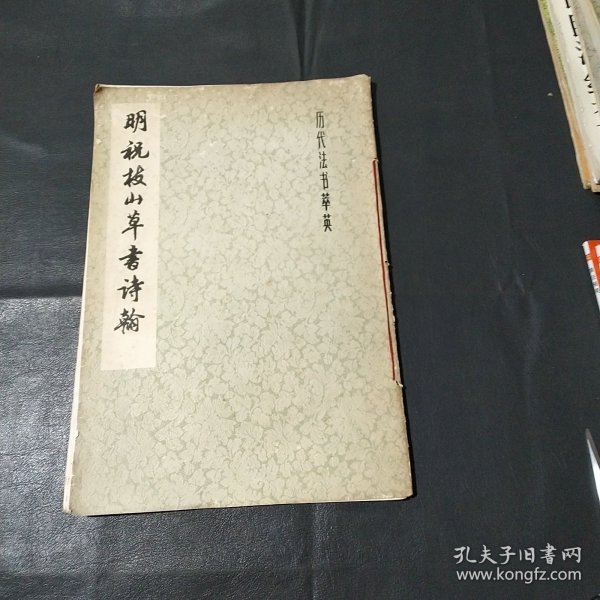 历代法书萃英
明祝枝山草书诗翰
孔夫子旧书网
www.kongfz.com